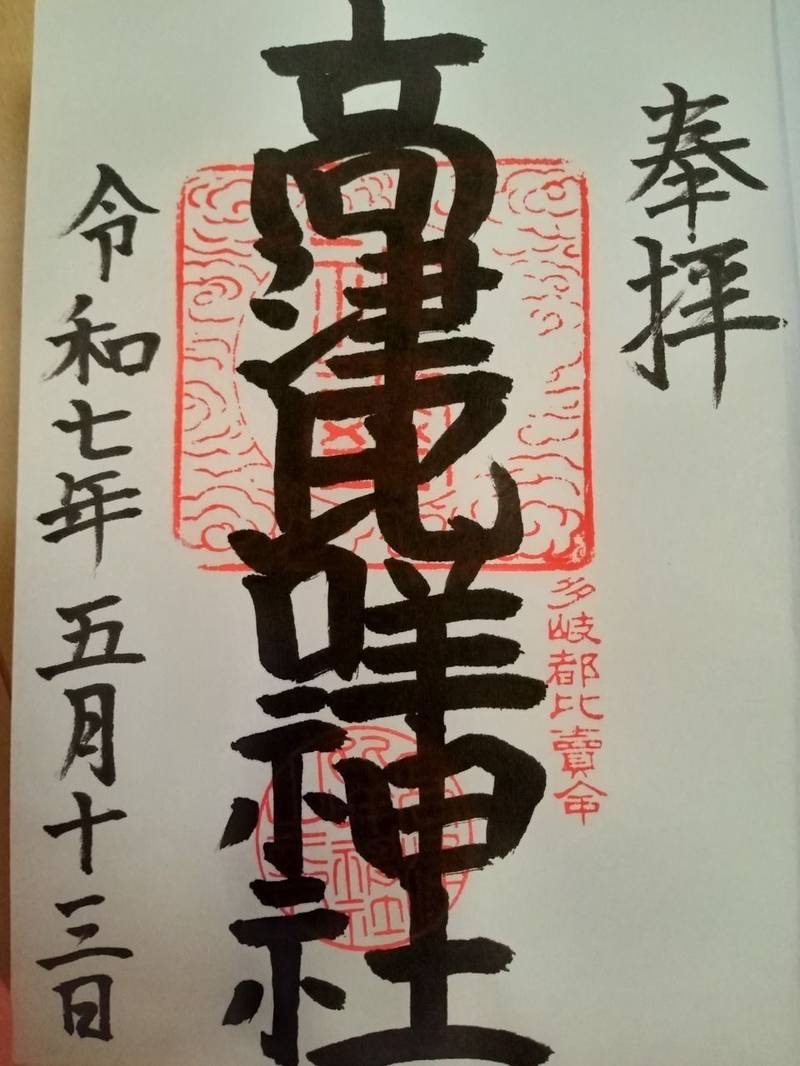 奉拝
多岐都比賣命
高津比咩神社
令和七年五月十三日